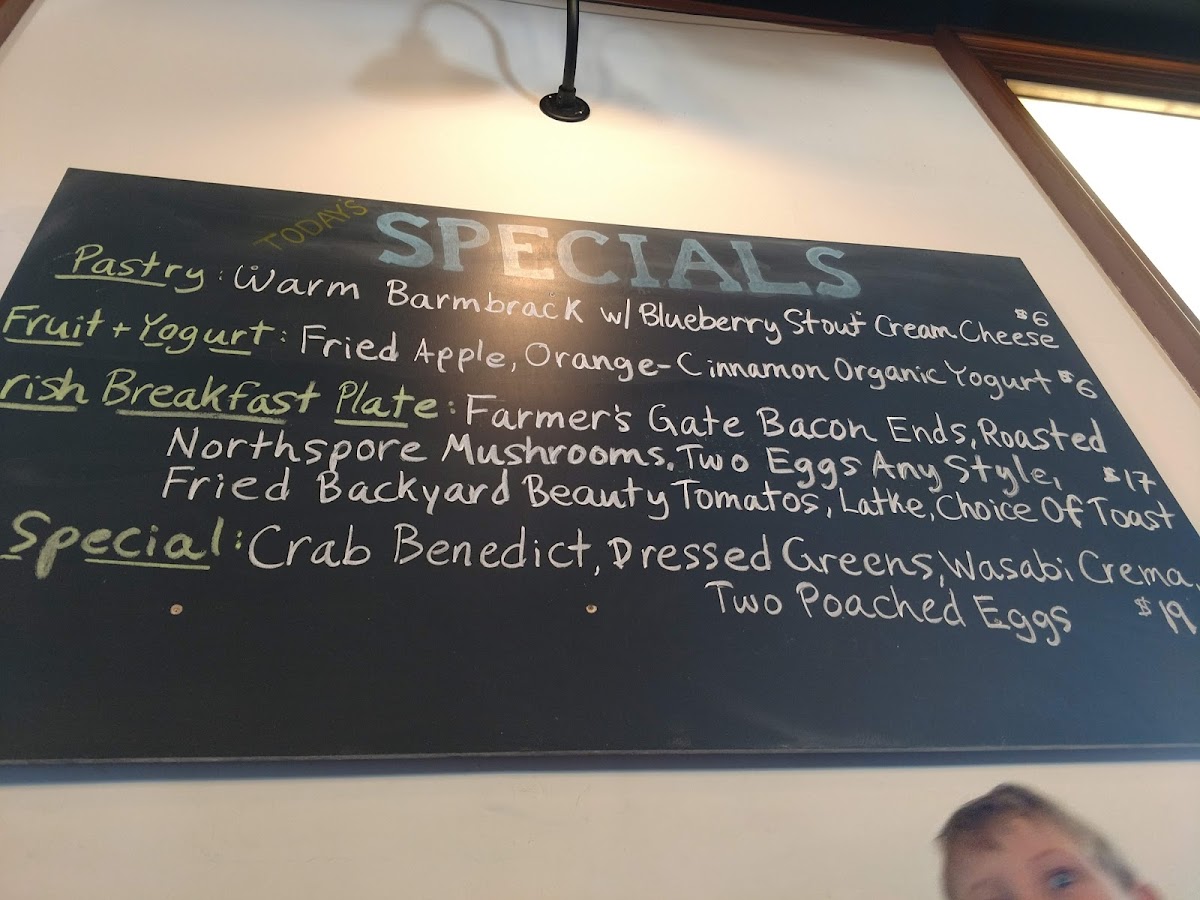 TODAY'S SPECIALS
Pastry: Warm Barmbrack w/ Blueberry Stout Cream Cheese $6
Fruit + Yogurt: Fried Apple, Orange-Cinnamon Organic Yogurt $6
rish Breakfast Plate: Farmer's Gate Bacon Ends, Roasted
Northspore Mushrooms, Two Eggs Any Style, $17
Fried Backyard Beauty Tomatos, Latke, Choice Of Toast
Special: Crab Benedict, Dressed Greens, Wasabi Crema,
Two Poached Eggs $19